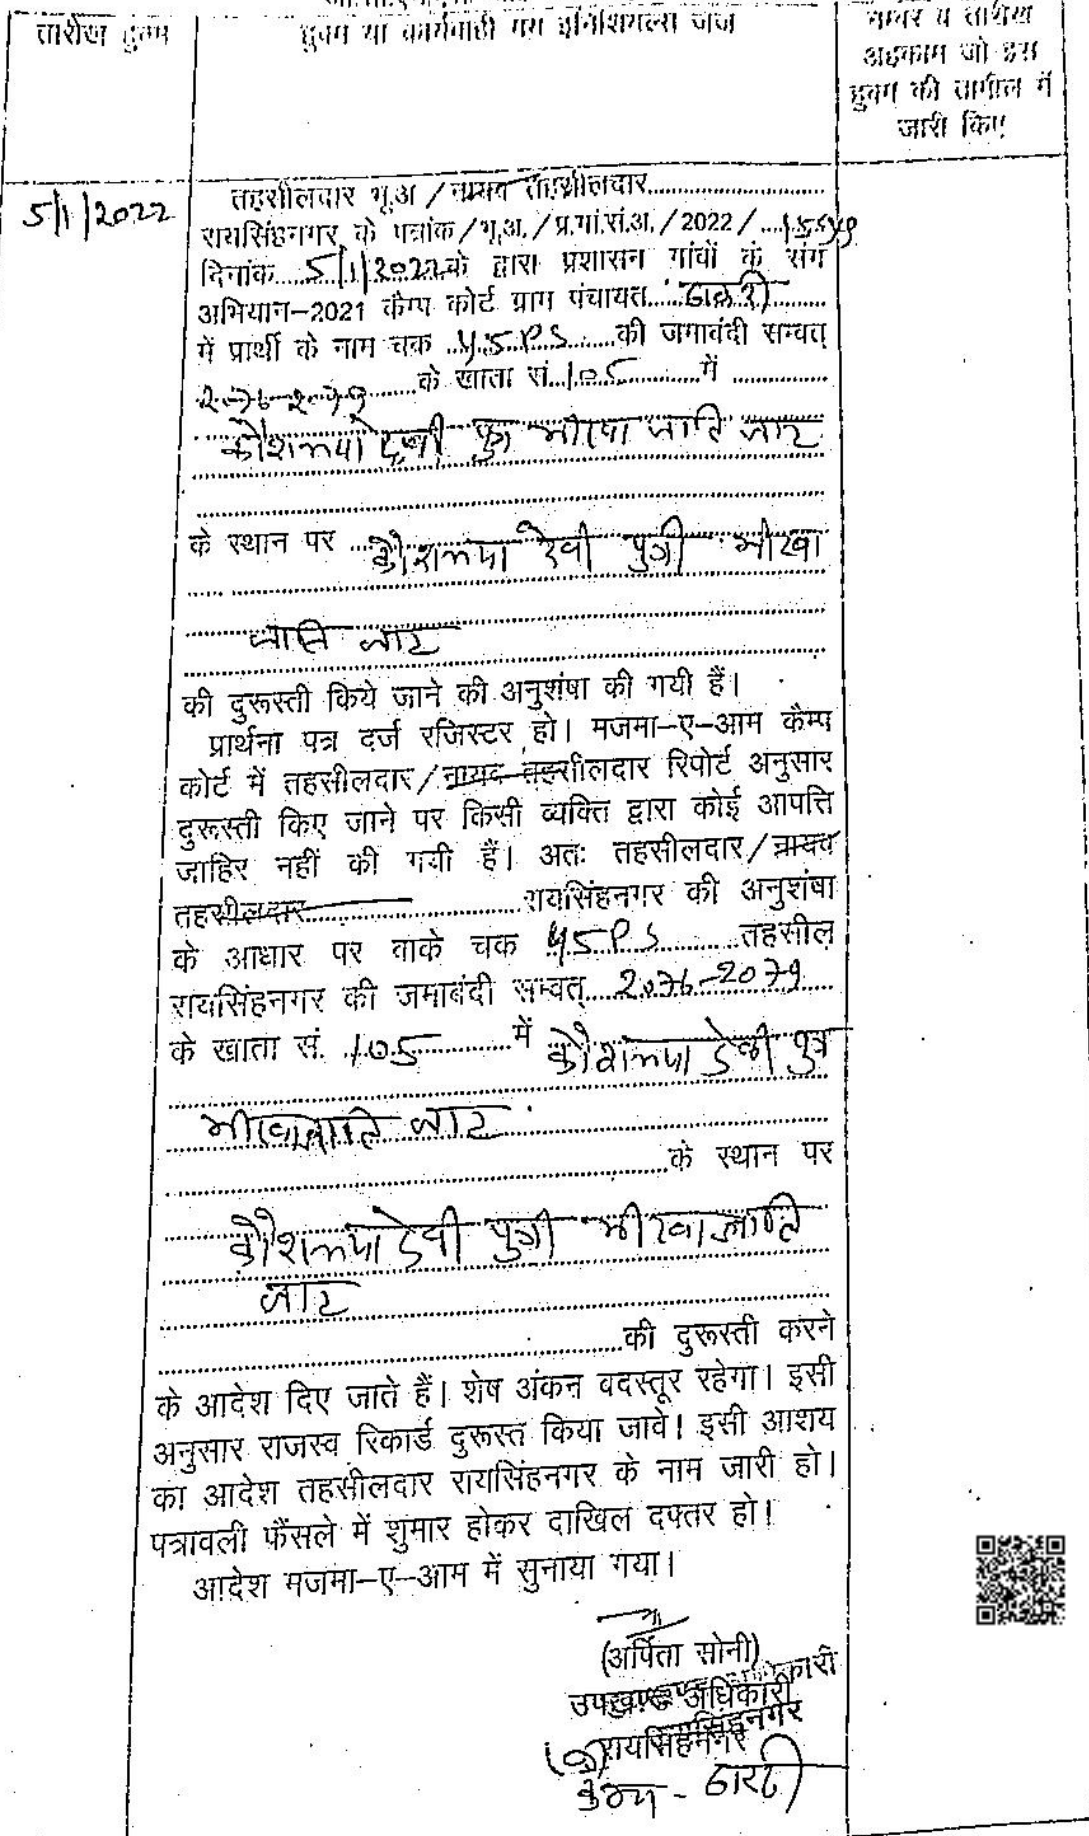 तारीख हुक्म
हुक्म या कार्यवाही मय इनिशियल्स जज
नम्बर व तारीख
अहकाम जो इस
हुक्म की तामील में
जारी किए
5/1/2022
तहसीलदार भू.अ / नायब तहसीलदार
रायसिंहनगर के पत्रांक/भू.अ./प्र.गां.सं.अ./2022/
दिनांक 5/1/2022 के द्वारा प्रशासन गांवों के संग
अभियान-2021 कैम्प कोर्ट ग्राम पंचायत
में प्रार्थी के नाम चक 45 P S की जमाबंदी सम्वत्
2076-2079 के खाता सं. 105 में
कौशल्या देवी पुत्र भीखा जाति जाट
के स्थान पर कौशल्या देवी पुत्री भीखा
जाति जाट
की दुरूस्ती किये जाने की अनुशंषा की गयी हैं।
प्रार्थना पत्र दर्ज रजिस्टर हो। मजमा-ए-आम कैम्प
कोर्ट में तहसीलदार/नायब तहसीलदार रिपोर्ट अनुसार
दुरूस्ती किए जाने पर किसी व्यक्ति द्वारा कोई आपत्ति
जाहिर नहीं की गयी हैं। अतः तहसीलदार/नायब
तहसीलदार रायसिंहनगर की अनुशंषा
के आधार पर वाके चक 45 P S तहसील
रायसिंहनगर की जमाबंदी सम्वत् 2076-2079
के खाता सं. 105 में कौशल्या देवी पुत्र
भीखा जाति जाट
के स्थान पर
कौशल्या देवी पुत्री भीखा जाति
जाट
की दुरूस्ती करने
के आदेश दिए जाते हैं। शेष अंकन वदस्तूर रहेगा। इसी
अनुसार राजस्व रिकार्ड दुरूस्त किया जावे। इसी आशय
का आदेश तहसीलदार रायसिंहनगर के नाम जारी हो।
पत्रावली फैंसले में शुमार होकर दाखिल दफ्तर हो।
आदेश मजमा-ए-आम में सुनाया गया।
(अर्पिता सोनी)
उपखण्ड अधिकारी
रायसिंहनगर